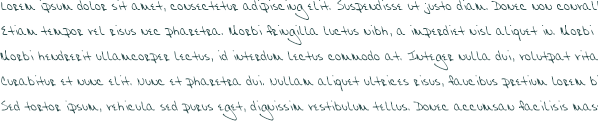 Lorem ipsum dolor sit amet, consectetur adipiscing elit. Suspendisse ut justo diam. Donec non
Etiam tempor vel risus nec pharetra. Morbi fringilla luctus nibh, a imperdiet nisl aliquet in. Morbi
Morbi hendrerit ullamcorper lectus, id interdum lectus commodo at. Integer nulla dui, volutpat
Curabitur et nunc elit. Nunc et pharetra dui. Nullam aliquet ultrices risus, faucibus pretium lorem
Sed tortor ipsum, vehicula sed purus eget, dignissim vestibulum tellus. Donec accumsan facilisis